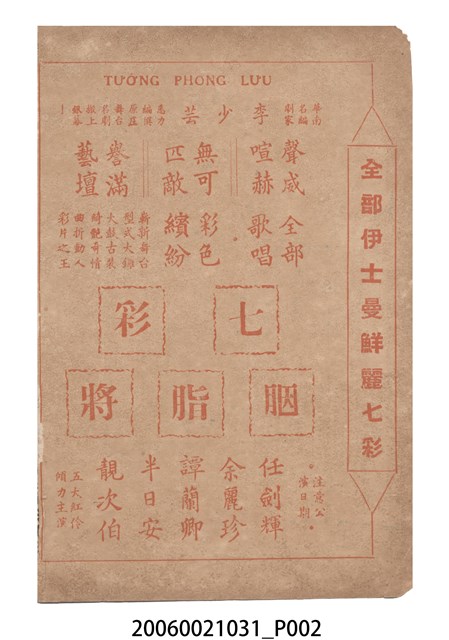 TƯỚNG PHONG LƯU
全部伊士曼鮮麗七彩
華南
名編
劇家
李少芸
嘔心
編撰
原莊
舞台
名劇
搬上
銀幕
聲威
喧赫
無可
匹敵
譽滿
藝壇
全部
歌唱
彩色
繽紛
嶄新舞台
型式大鑼
大鼓古裝
綺艷奇情
曲折動人
彩片之王
七彩
胭脂將
注意公
演日期
任劍輝
余麗珍
譚蘭卿
半日安
靚次伯
五大紅伶
傾力主演
20060021031_P002